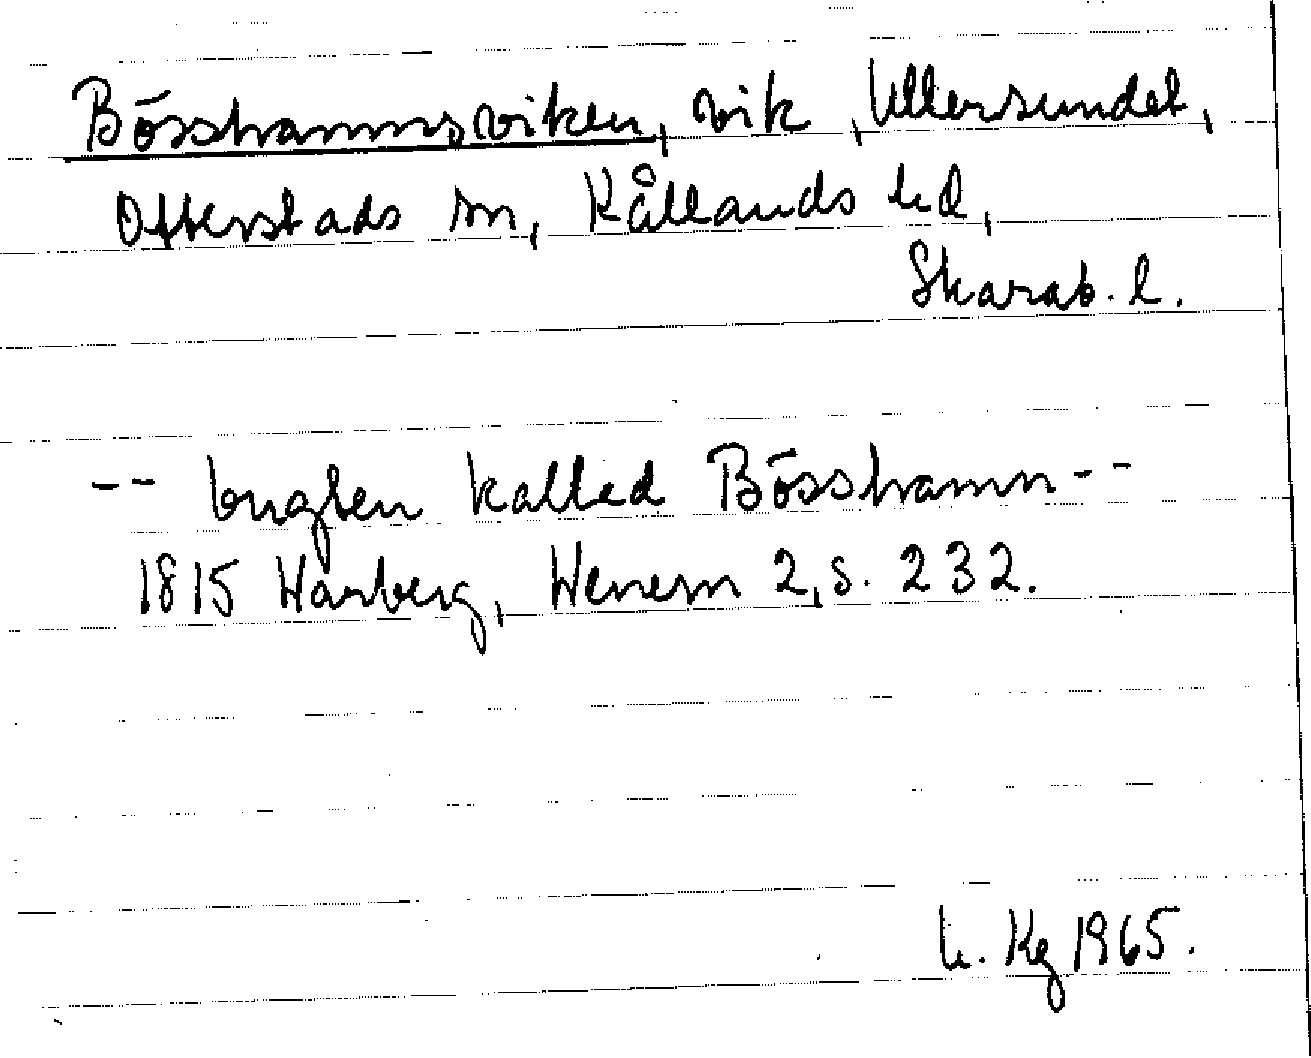 Bösshamnsviken, vik, Ullersundet,
Otterstads sn, Kållands hd,
Skarab. l.
-- bugten kallad Bösshamn--
1815 Warberg, Wenern 2, s. 232.
h. Kg 1965.